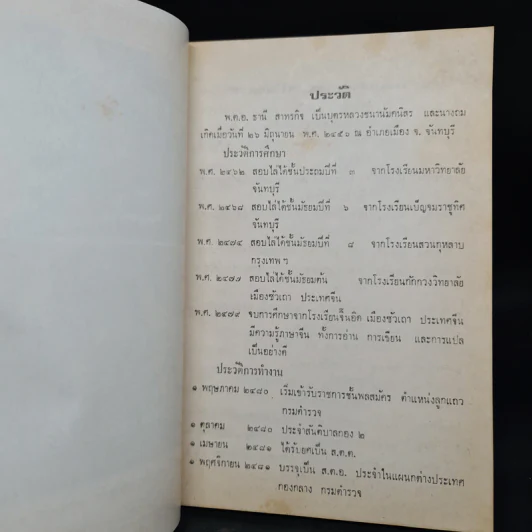 ประวัติ
พ.ต.อ. ธานี สาทรกิจ เป็นบุตรหลวงชนานัมคนิสร และนางถม
เกิดเมื่อวันที่ ๒๖ มิถุนายน พ.ศ. ๒๔๕๖ ณ อำเภอเมือง จ. จันทบุรี
ประวัติการศึกษา
พ.ศ. ๒๔๖๒ สอบไล่ได้ชั้นประถมปีที่ ๓ จากโรงเรียนมหาวิทยาลัย
จันทบุรี
พ.ศ. ๒๔๖๘ สอบไล่ได้ชั้นมัธยมปีที่ ๖ จากโรงเรียนเบ็ญจมราชูทิศ
จันทบุรี
พ.ศ. ๒๔๗๔ สอบไล่ได้ชั้นมัธยมปีที่ ๘ จากโรงเรียนสวนกุหลาบ
กรุงเทพ ฯ
พ.ศ. ๒๔๗๗ สอบไล่ได้ชั้นมัธยมต้น จากโรงเรียนกักกวงวิทยาลัย
เมืองซัวเถา ประเทศจีน
พ.ศ. ๒๔๗๙ จบการศึกษาจากโรงเรียนจิ๊นอิด เมืองซัวเถา ประเทศจีน
มีความรู้ภาษาจีน ทั้งการอ่าน การเขียน และการแปล
เป็นอย่างดี
ประวัติการทำงาน
๑ พฤษภาคม ๒๔๘๐ เริ่มเข้ารับราชการชั้นพลสมัคร ตำแหน่งลูกแถว
กรมตำรวจ
๑ ตุลาคม ๒๔๘๐ ประจำสันติบาลกอง ๒
๑ เมษายน ๒๔๘๑ ได้รับยศเป็น ส.ต.ต.
๑ พฤศจิกายน ๒๔๘๑ บรรจุเป็น ส.ต.อ. ประจำในแผนกต่างประเทศ
กองกลาง กรมตำรวจ